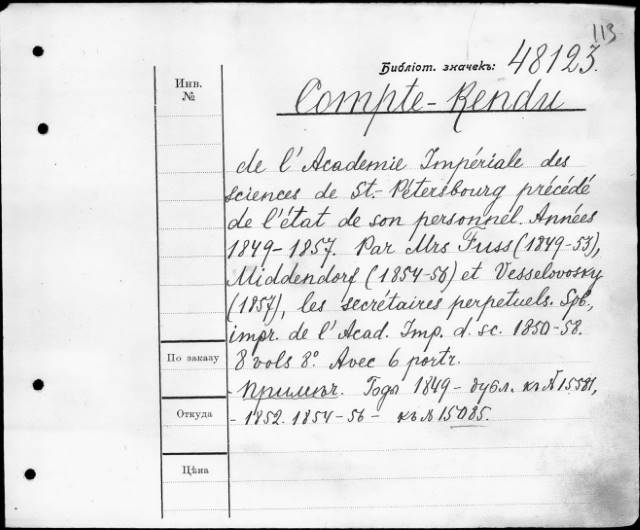 113
Библіот. значекъ: 48123.
Инв.
№
Compte-Rendu
de l'Academie Impériale des
sciences de St.-Pétersbourg précédé
de l'état de son personnel. Années
1849-1857. Par Mrs Fuss (1849-53),
Middendorf (1854-56) et Vesselovosky
(1857), les secrétaires perpetuels. Spb.,
impr. de l'Acad. Imp. d. sc. 1850-58.
По заказу
8 vols 8º. Avec 6 portr.
- Примѣч. Годы 1849 - дубл. къ № 15581,
Откуда
- 1852. 1854-56 - къ № 15085.
Цѣна